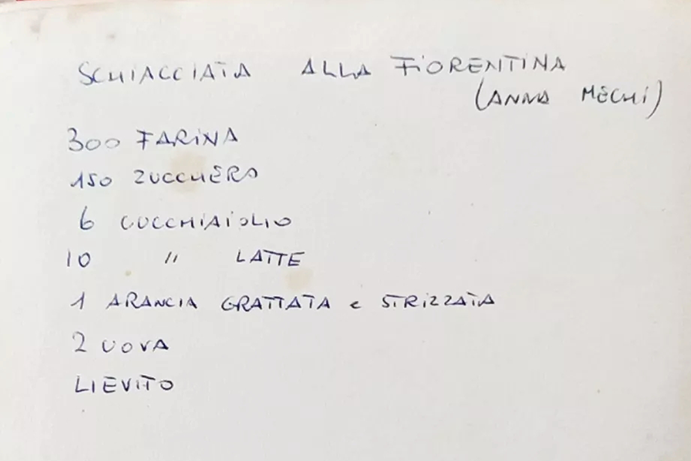 SCHIACCIATA ALLA FIORENTINA
(ANNA MECHI)
300 FARINA
150 ZUCCHERO
6 CUCCHIAI OLIO
10 " LATTE
1 ARANCIA GRATTATA e STRIZZATA
2 UOVA
LIEVITO